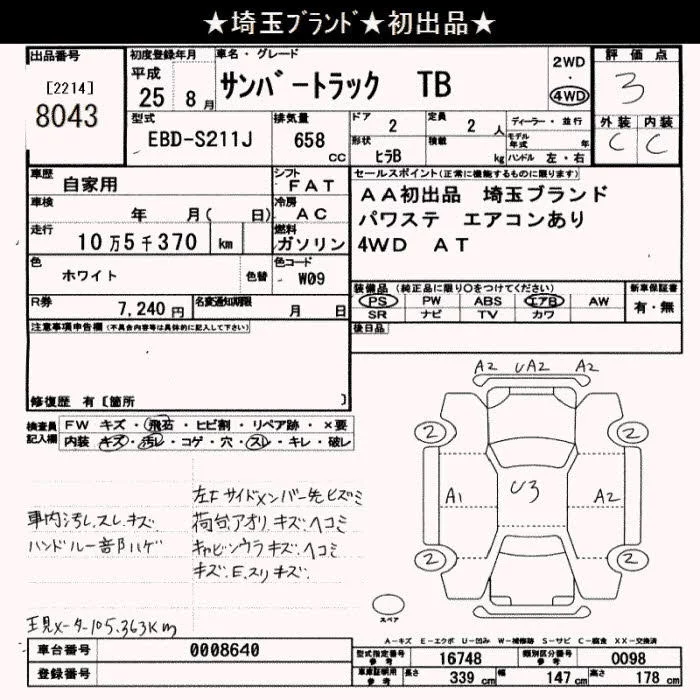 ★埼玉ﾌﾞﾗﾝﾄﾞ★初出品★
出品番号
[2214]
8043
初度登録年月
平成
25 8月
車名・グレード
サンバートラック TB
2WD
・
4WD
評価点
3
外装 内装
C C
型式
EBD-S211J
排気量
658
CC
ドア
2
定員
2 人
形状
ヒラB
積載
kg
ディーラー・並行
モデル
年式 年
ハンドル 左・右
車歴
自家用
シフト
FAT
車検
年 月( 日)
冷房
AC
走行
10万5千370 km
燃料
ガソリン
色
ホワイト
色替
色コード
W09
R券
7,240 円
名変通知期限
月 日
セールスポイント(正常に機能するものに限ります)
AA初出品 埼玉ブランド
パワステ エアコンあり
4WD AT
装備品(純正品に限り○をつけてください)
PS PW ABS エアB AW
SR ナビ TV カワ
新車保証書
有・無
後日品
注意事項申告欄(不具合内容等は具体的に記入して下さい)
修復歴 有〔箇所 〕
検査員
記入欄
FW キズ・飛石・ヒビ割・リペア跡・×要
内装 キズ・汚レ・コゲ・穴・スレ・キレ・破レ
車内汚レ.スレ.キズ.
ハンドル一部ハゲ
現メーター105.363Km
左Fサイドメンバー先ヒズミ
荷台アオリ キズ.ヘコミ
キャビンウラ キズ.ヘコミ
キズ.E.スリキズ.
A2 UA2 A2
2 2
A1 U3 A2
2 2
スペア
A-キズ E-エクボ U-凹み W-補修跡 S-サビ C-腐食 XX-交換済
車台番号
0008640
登録番号
型式指定番号
参考
16748
類別区分番号
参考
0098
車庫証明用
参考
長さ
339 cm
幅
147 cm
高さ
178 cm